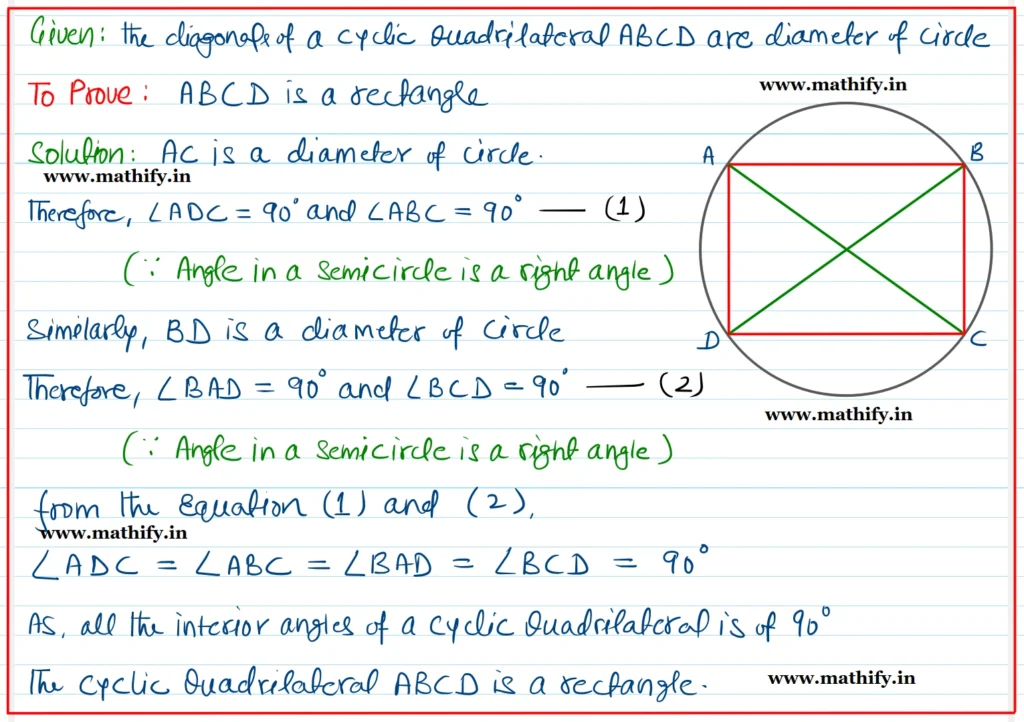 Given: the diagonals of a cyclic Quadrilateral ABCD are diameter of circle
To Prove: ABCD is a rectangle
www.mathify.in
Solution: AC is a diameter of circle.
www.mathify.in
Therefore, ∠ADC = 90° and ∠ABC = 90° — (1)
(∵ Angle in a semicircle is a right angle)
Similarly, BD is a diameter of circle
Therefore, ∠BAD = 90° and ∠BCD = 90° — (2)
(∵ Angle in a semicircle is a right angle)
from the Equation (1) and (2),
www.mathify.in
∠ADC = ∠ABC = ∠BAD = ∠BCD = 90°
As, all the interior angles of a cyclic Quadrilateral is of 90°
The cyclic Quadrilateral ABCD is a rectangle.
www.mathify.in
A
B
D
C
www.mathify.in